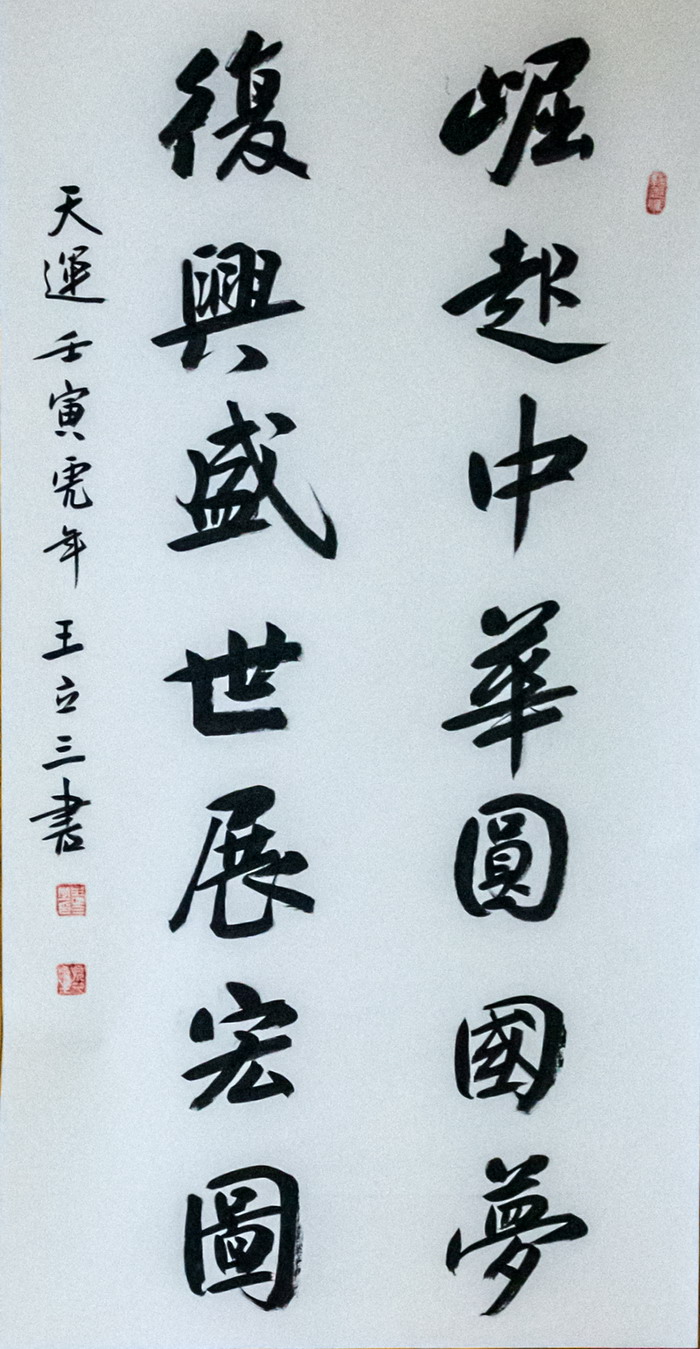 崛起中華圓國夢
復興盛世展宏圖
天運壬寅虎年 王立三書